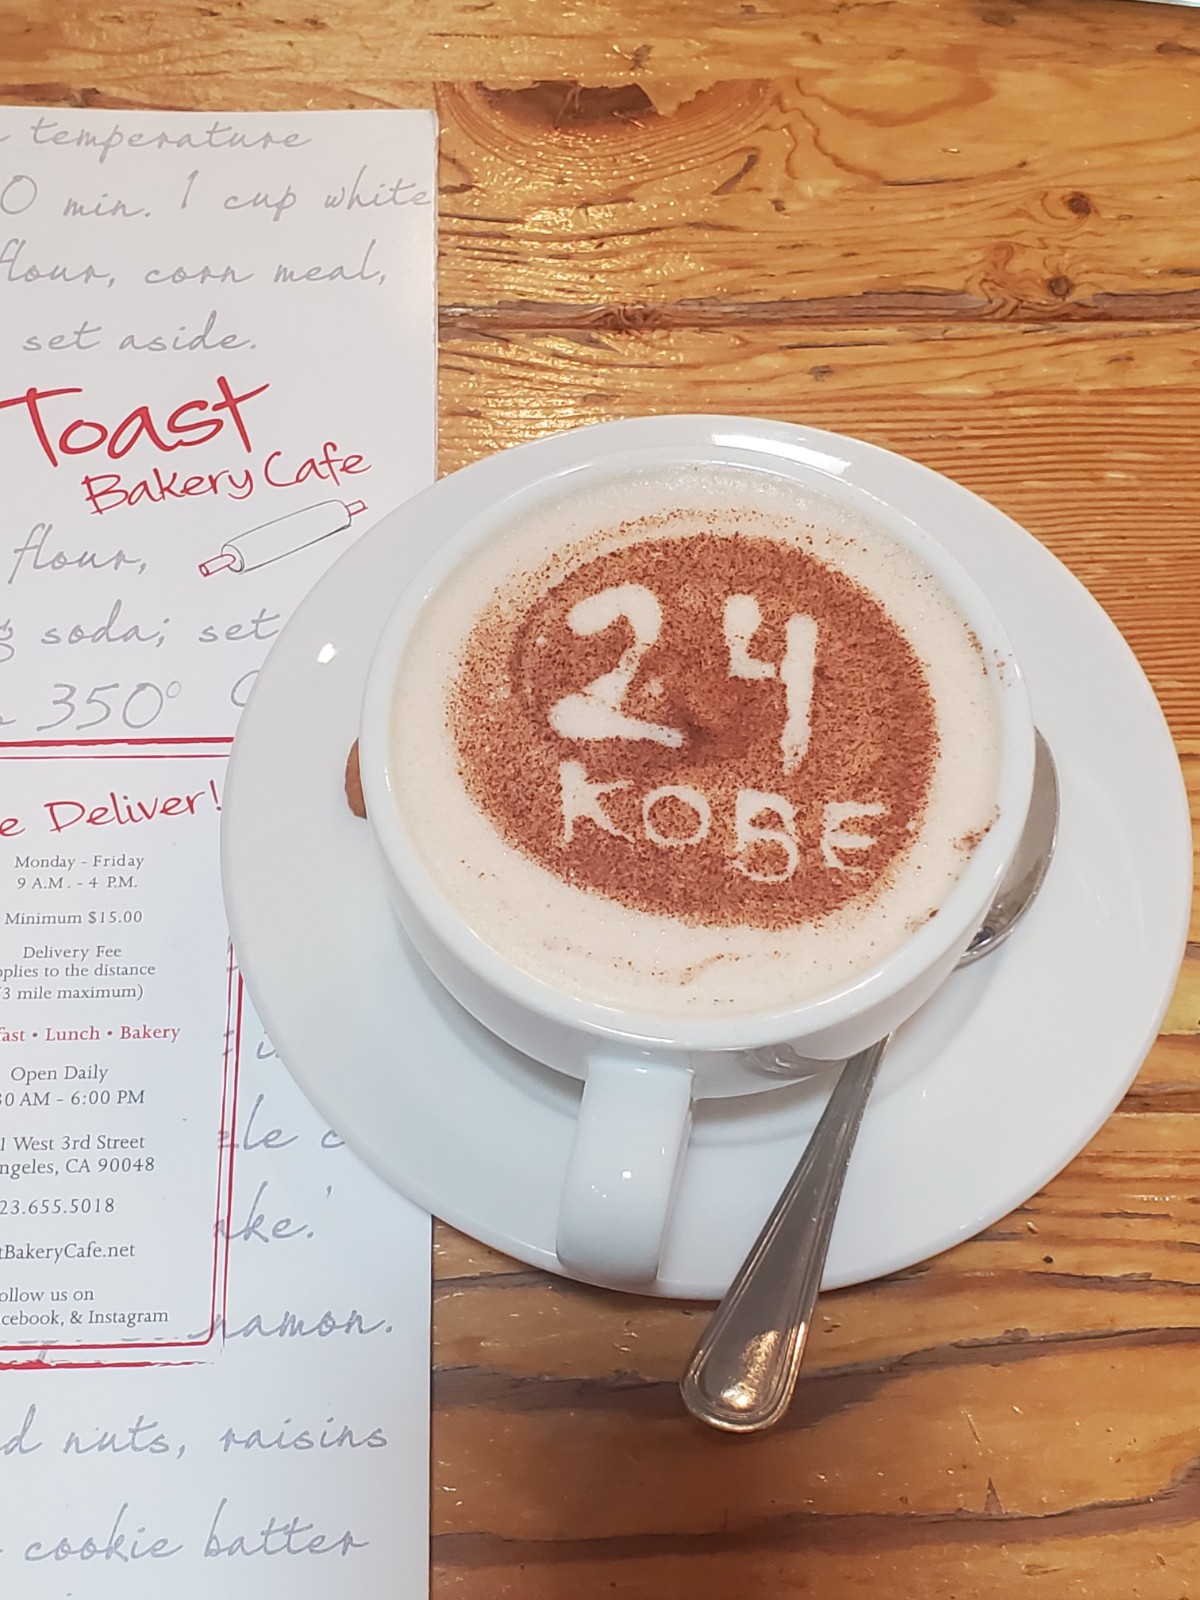 temperature
0 min. 1 cup white
flour, corn meal,
set aside.
Toast
Bakery Cafe
flour,
soda; set
350°
e Deliver!
Monday - Friday
9 A.M. - 4 P.M.
Minimum $15.00
Delivery Fee
pplies to the distance
3 mile maximum)
fast • Lunch • Bakery
Open Daily
30 AM - 6:00 PM
1 West 3rd Street
ngeles, CA 90048
23.655.5018
tBakeryCafe.net
ollow us on
cebook, & Instagram
namon.
d nuts, raisins
cookie batter
24
KOBE